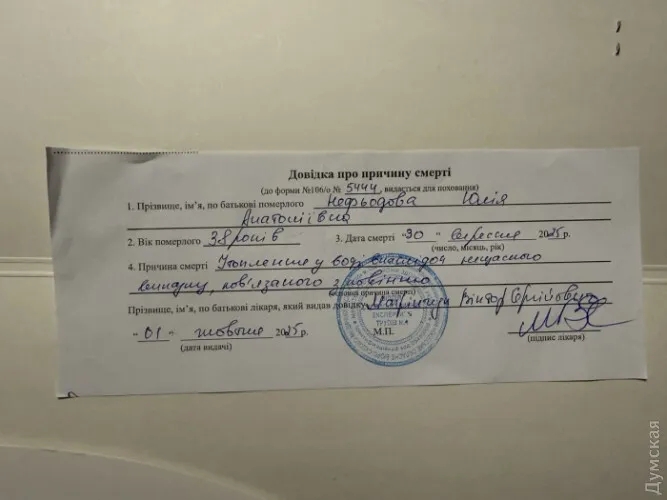 Довідка про причину смерті
(до форми №106/о № 5444, видається для поховання)
1. Прізвище, ім'я, по батькові померлого Нефьодова Юлія
Анатоліївна
2. Вік померлого 38 років 3. Дата смерті "30" вересня 2025 р.
(число, місяць, рік)
4. Причина смерті Утоплення у воді внаслідок нещасного
випадку, пов'язаного з повінню
причина смерті)
Прізвище, ім'я, по батькові лікаря, який видав довідку Віктор Сергійович
"01" жовтня 2025 р. М.П.
(дата видачі) (підпис лікаря)
Думская